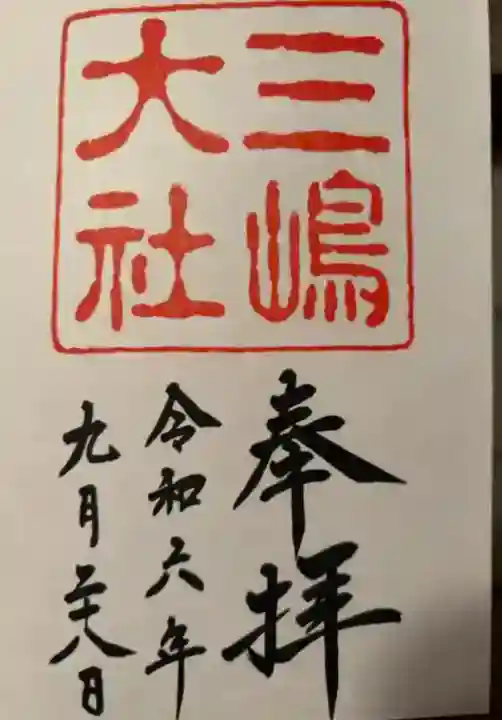 三嶋
大社
奉拝
令和六年
九月二十八日